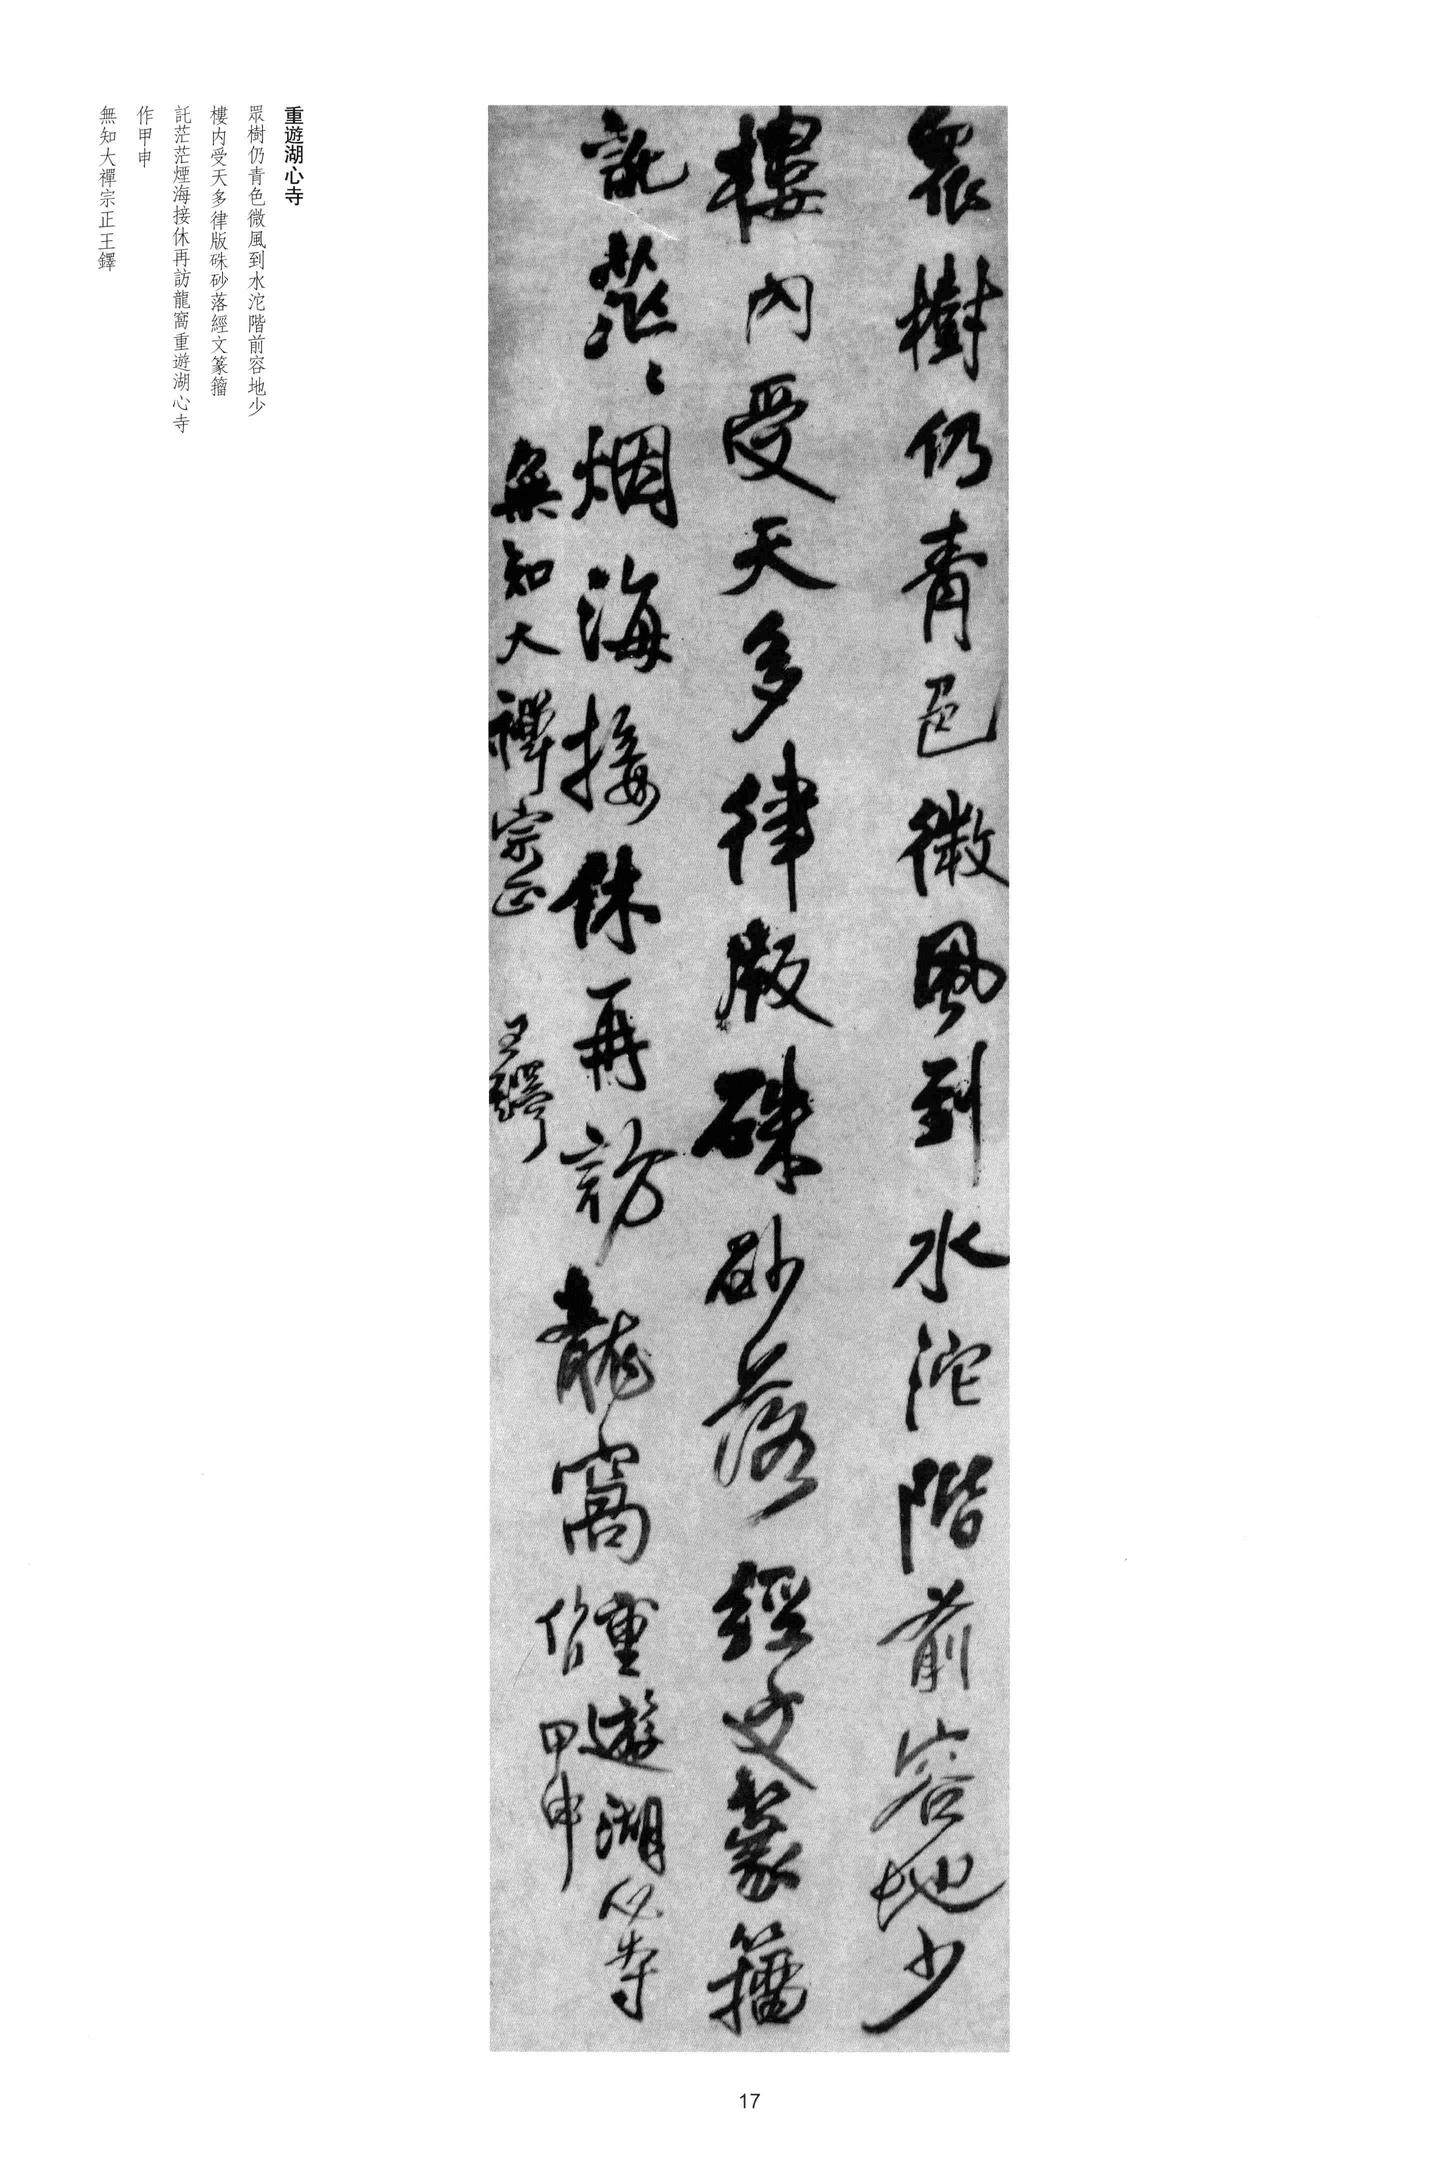 重遊湖心寺
眾樹仍青色微風到水沱階前容地少
樓内受天多律版硃砂落經文篆籀
託茫茫煙海接休再訪龍窩重遊湖心寺
作甲申
無知大禪宗正王鐸
衆樹仍青色微風到水沱階前容地少
樓内受天多律版硃砂落經文篆籀
託茫〻烟海接休再訪龍窩重遊湖心寺
作甲申
無知大禪宗正 王鐸
17